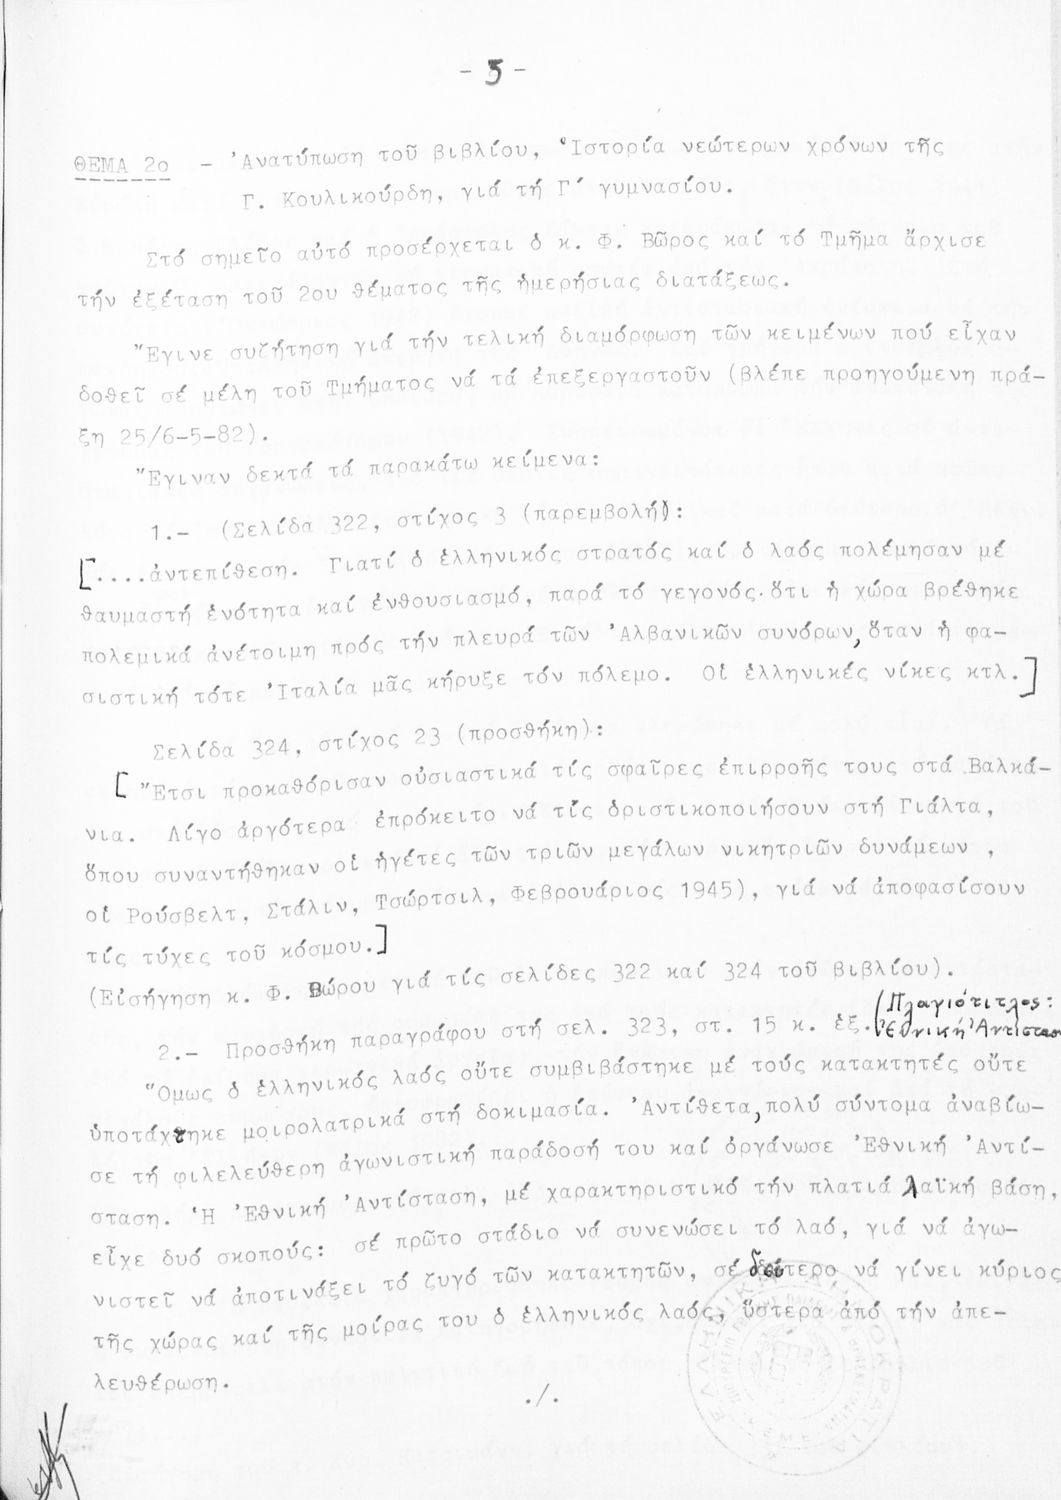 - 3 -
ΘΕΜΑ 2ο - Ἀνατύπωση τοῦ βιβλίου, Ἱστορία νεώτερων χρόνων τῆς
Γ. Κουλικούρδη, γιά τή Γ΄ γυμνασίου.
Στό σημεῖο αὐτό προσέρχεται ὁ κ. Φ. Βῶρος καί τό Τμῆμα ἄρχισε
τήν ἐξέταση τοῦ 2ου θέματος τῆς ἡμερήσιας διατάξεως.
Ἔγινε συζήτηση γιά τήν τελική διαμόρφωση τῶν κειμένων πού εἶχαν
δοθεῖ σέ μέλη τοῦ Τμήματος νά τά ἐπεξεργαστοῦν (βλέπε προηγούμενη πρά-
ξη 25/6-5-82).
Ἔγιναν δεκτά τά παρακάτω κείμενα:
1.- (Σελίδα 322, στίχος 3 (παρεμβολή):
[....ἀντεπίθεση. Γιατί ὁ ἑλληνικός στρατός καί ὁ λαός πολέμησαν μέ
θαυμαστή ἑνότητα καί ἐνθουσιασμό, παρά τό γεγονός ὅτι ἡ χώρα βρέθηκε
πολεμικά ἀνέτοιμη πρός τήν πλευρά τῶν Ἀλβανικῶν συνόρων, ὅταν ἡ φα-
σιστική τότε Ἰταλία μᾶς κήρυξε τόν πόλεμο. Οἱ ἑλληνικές νίκες κτλ.]
Σελίδα 324, στίχος 23 (προσθήκη):
[ Ἔτσι προκαθόρισαν οὐσιαστικά τίς σφαῖρες ἐπιρροῆς τους στά Βαλκά-
νια. Λίγο ἀργότερα ἐπρόκειτο νά τίς ὁριστικοποιήσουν στή Γιάλτα,
ὅπου συναντήθηκαν οἱ ἡγέτες τῶν τριῶν μεγάλων νικητριῶν δυνάμεων ,
οἱ Ρούσβελτ, Στάλιν, Τσώρτσιλ, Φεβρουάριος 1945), γιά νά ἀποφασίσουν
τίς τύχες τοῦ κόσμου.]
(Εἰσήγηση κ. Φ. Βώρου γιά τίς σελίδες 322 καί 324 τοῦ βιβλίου).
(Πλαγιότιτλος:
2.- Προσθήκη παραγράφου στή σελ. 323, στ. 15 κ. ἑξ. Ἐθνική Ἀντίσταση
Ὅμως ὁ ἑλληνικός λαός οὔτε συμβιβάστηκε μέ τούς κατακτητές οὔτε
ὑποτάχτηκε μοιρολατρικά στή δοκιμασία. Ἀντίθετα, πολύ σύντομα ἀναβίω-
σε τή φιλελεύθερη ἀγωνιστική παράδοσή του καί ὀργάνωσε Ἐθνική Ἀντί-
σταση. Ἡ Ἐθνική Ἀντίσταση, μέ χαρακτηριστικό τήν πλατιά λαϊκή βάση,
εἶχε δυό σκοπούς: σέ πρῶτο στάδιο νά συνενώσει τό λαό, γιά νά ἀγω-
νιστεῖ νά ἀποτινάξει τό ζυγό τῶν κατακτητῶν, σέ δεύτερο νά γίνει κύριος
τῆς χώρας καί τῆς μοίρας του ὁ ἑλληνικός λαός, ὕστερα ἀπό τήν ἀπε-
λευθέρωση.
./.
ΕΛΛΗΝΙΚΗ ΔΗΜΟΚΡΑΤΙΑ